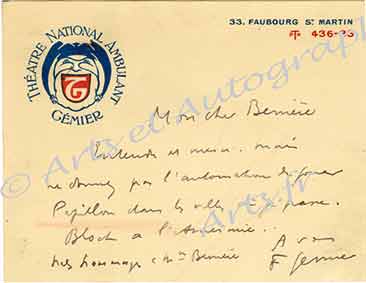 THÉATRE NATIONAL AMBULANT
GÉMIER
33. FAUBOURG St MARTIN
436-
Mon cher Bernière
Entendu et merci. mais
ne donnez pas l'autorisation de jouer
Papillon dans les villes
Bloch a l'
Mes hommages à Mme Bernière
A vous
F Gémier
© Arts et Autographes
Artz.fr